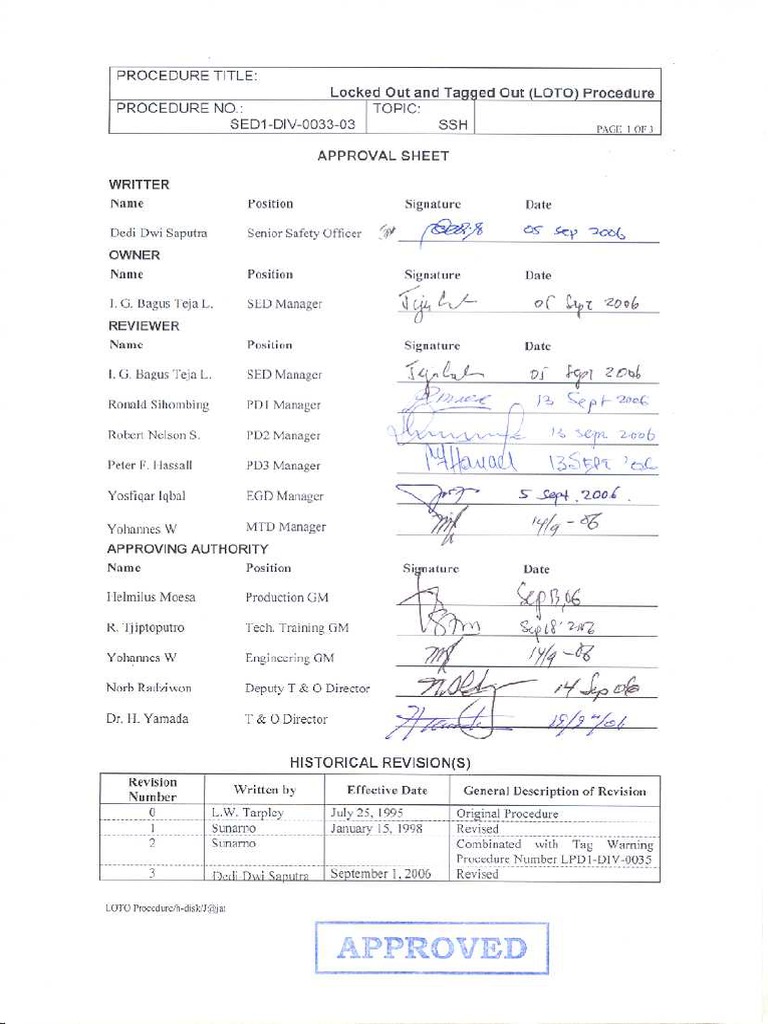 PROCEDURE TITLE:
Locked Out and Tagged Out (LOTO) Procedure
PROCEDURE NO.: TOPIC:
SED1-DIV-0033-03 SSH PAGE 1 OF 3
APPROVAL SHEET
WRITTER
Name Position Signature Date
Dedi Dwi Saputra Senior Safety Officer 05 Sep 2006
OWNER
Name Position Signature Date
I. G. Bagus Teja L. SED Manager 05 Sept 2006
REVIEWER
Name Position Signature Date
I. G. Bagus Teja L. SED Manager 05 Sept 2006
Ronald Sihombing PD1 Manager 13 Sept 2006
Robert Nelson S. PD2 Manager 13 sept 2006
Peter F. Hassall PD3 Manager 13 SEPT
Yosfiqar Iqbal EGD Manager 5 sept. 2006.
Yohannes W MTD Manager 14/9-06
APPROVING AUTHORITY
Name Position Signature Date
Helmilus Moesa Production GM Sep 13, 06
R. Tjiptoputro Tech. Training GM Sep 18' 2006
Yohannes W Engineering GM 14/9-06
Norb Radziwon Deputy T & O Director 14 Sep 06
Dr. H. Yamada T & O Director
HISTORICAL REVISION(S)
Revision Number Written by Effective Date General Description of Revision
0 L.W. Tarpley July 25, 1995 Original Procedure
1 Sunarno January 15, 1998 Revised
2 Sunarno Combinated with Tag Warning
Procedure Number LPD1-DIV-0035
3 Dedi Dwi Saputra September 1, 2006 Revised
LOTO Procedure/h-disk/J@jat
APPROVED